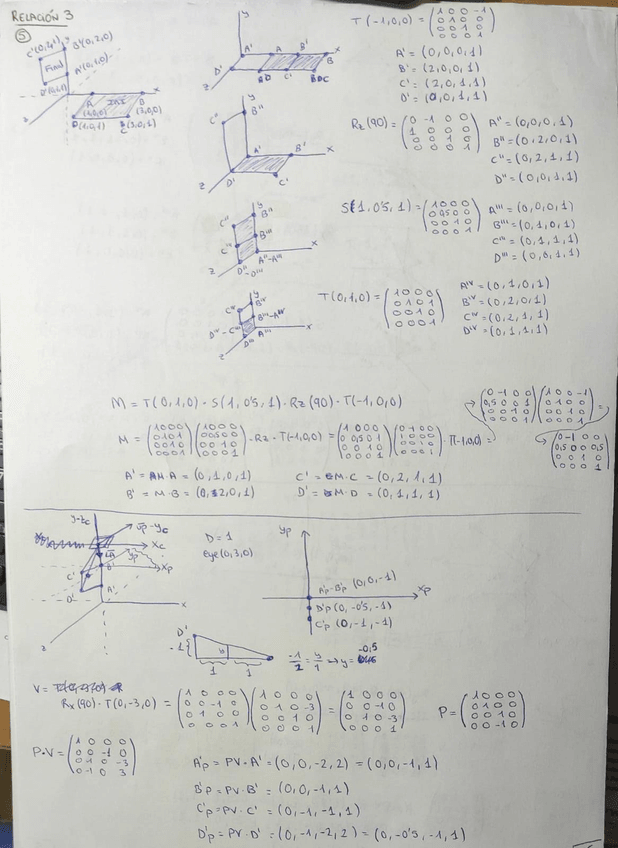 RELACIÓN 3
5
C'(0,2,1) B'(0,2,0)
Final
A'(0,1,0)
D'(0,1,1)
A B
(1,0,0) (3,0,0)
D(1,0,1) C (3,0,1)
z
y
A' A B' B x
D' C'
z
T(-1,0,0) = (1 0 0 -1
0 1 0 0
0 0 1 0
0 0 0 1)
A' = (0,0,0,1)
B' = (2,0,0,1)
C' = (2,0,1,1)
D' = (0,0,1,1)
y
C'' B''
A' B' x
D' C'
z
Rz(90) = (0 -1 0 0
1 0 0 0
0 0 1 0
0 0 0 1)
A'' = (0,0,0,1)
B'' = (0,2,0,1)
C'' = (0,2,1,1)
D'' = (0,0,1,1)
y
C'' B''
C''' B'''
A''-A''' x
D''
-D'''
z
S(1,0'5,1) = (1 0 0 0
0 0,5 0 0
0 0 1 0
0 0 0 1)
A''' = (0,0,0,1)
B''' = (0,1,0,1)
C''' = (0,1,1,1)
D''' = (0,0,1,1)
y
C^IV B^IV
D^IV-C''' B'''-A^IV
D''' A''' x
z
T(0,1,0) = (1 0 0 0
0 1 0 1
0 0 1 0
0 0 0 1)
A^IV = (0,1,0,1)
B^IV = (0,2,0,1)
C^IV = (0,2,1,1)
D^IV = (0,1,1,1)
M = T(0,1,0) · S(1,0'5,1) · Rz(90) · T(-1,0,0)
M = (1 0 0 0
0 1 0 1
0 0 1 0
0 0 0 1) (1 0 0 0
0 0,5 0 0
0 0 1 0
0 0 0 1) · Rz · T(-1,0,0) = (1 0 0 0
0 0,5 0 1
0 0 1 0
0 0 0 1) (0 -1 0 0
1 0 0 0
0 0 1 0
0 0 0 1) · T(-1,0,0) =
(0 -1 0 0
0,5 0 0 1
0 0 1 0
0 0 0 1) (1 0 0 -1
0 1 0 0
0 0 1 0
0 0 0 1) =
(0 -1 0 0
0,5 0 0 0,5
0 0 1 0
0 0 0 1)
A' = M·A = (0,1,0,1) C' = M·C = (0,2,1,1)
B' = M·B = (0,2,0,1) D' = M·D = (0,1,1,1)
y-zc
yp-yc
xc
yp
C' B' xp
D' A'
x
z
D = 1
Eye(0,3,0)
yp
A'p-B'p (0,0,-1) xp
D'p (0,-0'5,-1)
C'p (0,-1,-1)
D'
-1
1 1
-1/2 = y/1 → y = -0,5
V =
Rx(90) · T(0,-3,0) = (1 0 0 0
0 0 -1 0
0 1 0 0
0 0 0 1) (1 0 0 0
0 1 0 -3
0 0 1 0
0 0 0 1) = (1 0 0 0
0 0 -1 0
0 1 0 -3
0 0 0 1)
P = (1 0 0 0
0 1 0 0
0 0 1 0
0 0 -1 0)
P·V = (1 0 0 0
0 0 -1 0
0 1 0 -3
0 -1 0 3)
A'p = PV·A' = (0,0,-2,2) = (0,0,-1,1)
B'p = PV·B' = (0,0,-1,1)
C'p = PV·C' = (0,-1,-1,1)
D'p = PV·D' = (0,-1,-2,2) = (0,-0'5,-1,1)